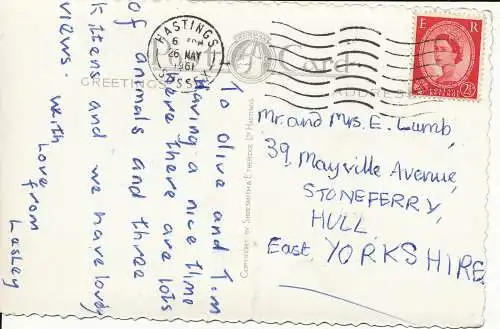 Post Card
GREETINGS
ADDRESS
HASTINGS
6
26 MAY
1961
SUSSEX
E R
2½D
To Olive and Tim
Having a nice time
here there are lots
of animals and three
kittens and we have lovely
views. With love
from
Lesley
Mr. and Mrs. E. Lumb,
39, Mayville Avenue,
STONEFERRY,
HULL.
East YORKSHIRE.
COPYRIGHT BY SHOESMITH & ETHERIDGE LTD HASTINGS